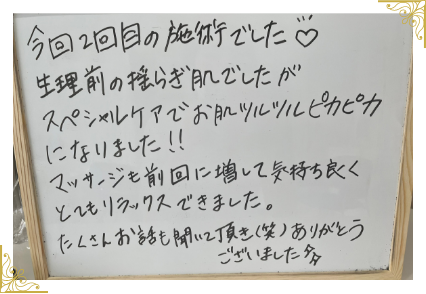 今回2回目の施術でした♡
生理前の揺らぎ肌でしたが
スペシャルケアでお肌ツルツルピカピカ
になりました!!
マッサージも前回に増して気持ち良く
とてもリラックスできました。
たくさんお話も聞いて頂き(笑)ありがとう
ございました